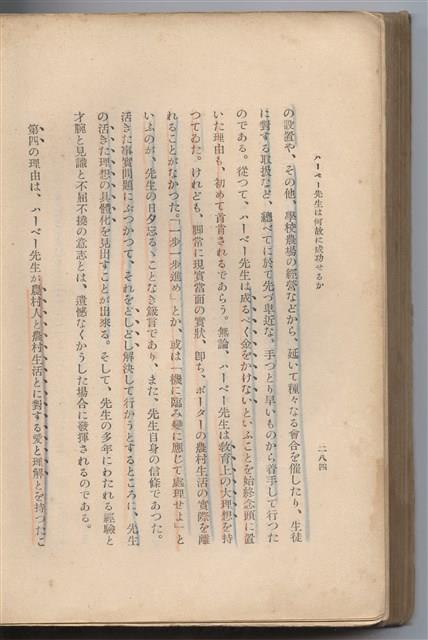 ハーベー先生は何故に成功せるか
二八四
の設置や、その他、學校農場の經營などから、延いて種々なる會合を催したり、生徒
に對する取扱など、總べてに於て先づ卑近な、手つとり早いものから着手して行つた
のである。從つて、ハーベー先生は成るべく金をかけないといふことを始終念頭に置
いた理由も、初めて首肯されるであらう。無論、ハーベー先生は敎育上の大理想を持
つてゐた。けれども、脚常に現實當面の實狀、卽ち、ポーターの農村生活の實際を離
れることがなかつた。「一步一步進め」とか、或は「機に臨み變に應じて處理せよ」と
いふのが、先生の日夕忘るゝことなき箴言であり、また、先生自身の信條であつた。
活きた事實問題にぶつかつて、それをどしどし解決して行かうとするところに、先生
の活きた理想の具體化を見出すことが出來る。そして、先生の多年にわたれる經驗と
才腕と見識と不屈不撓の意志とは、遺憾なくかうした場合に發揮されるのである。
第四の理由は、ハーベー先生が農村人と農村生活とに對する愛と理解とを持つたこ